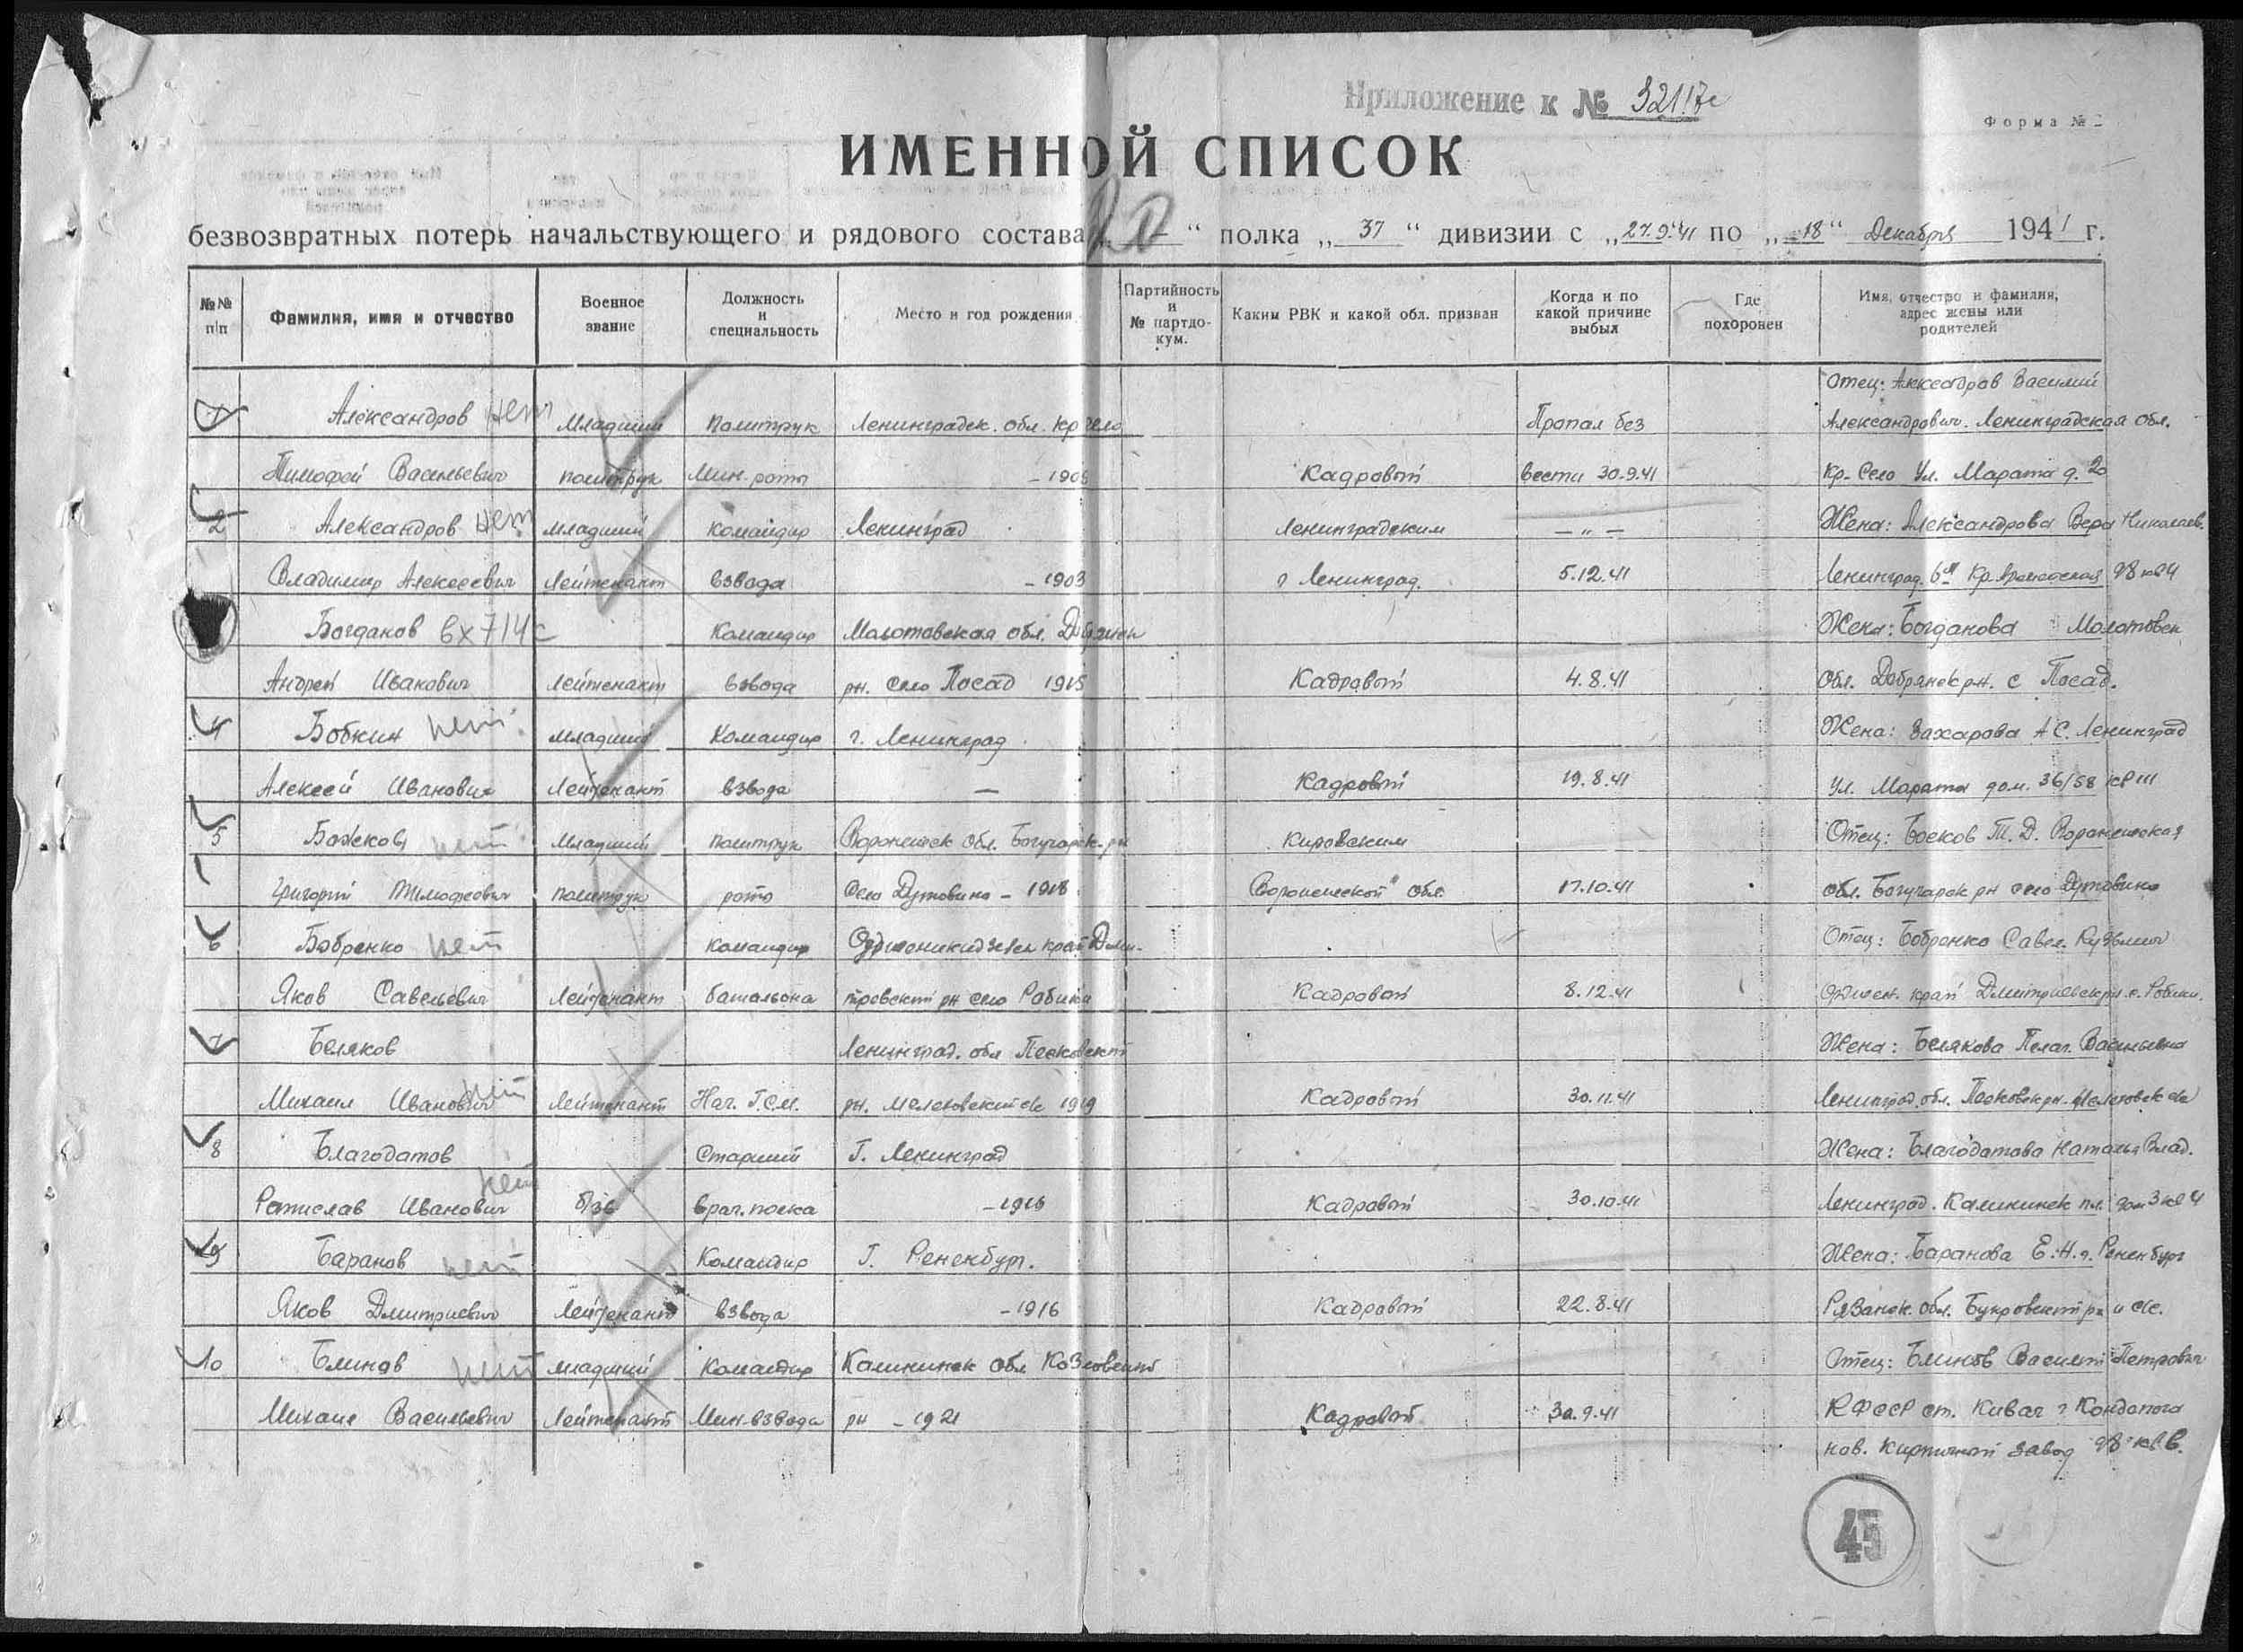 Приложение к № 32117с
Форма № 2
ИМЕННОЙ СПИСОК
безвозвратных потерь начальствующего и рядового состава „ — “ полка „ 37 “ дивизии с „27.9.41 по „18“ Декабря 1941 г.
№№ п/п Фамилия, имя и отчество Военное звание Должность и специальность Место и год рождения Партийность и № партдокум. Каким РВК и какой обл. призван Когда и по какой причине выбыл Где похоронен Имя, отчество и фамилия, адрес жены или родителей
Отец: Александров Василий
1 Александров нет Младший Политрук Ленинградск. обл. Кр село Пропал без Александрович. Ленинградская обл.
Тимофей Васильевич политрук Мин. роты Кадровый вести 30.9.41 Кр. Село Ул. Марата д. 20
2 Александров нет младший командир Ленинград Ленинградским — " — Жена: Александрова Вера Николаев.
Владимир Алексеевич Лейтенант взвода - 1903 г Ленинград. 5.12.41 Ленинград. 6я Кр.
Богданов вх 714с Командир Молотовская обл. Добрянск Жена: Богданова Молотовск
Андрей Иванович Лейтенант взвода рн. село Посад 1915 Кадровый 4.8.41 обл. Добрянск рн. с Посад.
4 Бобкин нет. младший Командир г. Ленинград Жена: Захарова А С. Ленинград
Алексей Иванович Лейтенант взвода — Кадровый 19.8.41 Ул. Марата дом. 36/58 кв
5 Божков нет Младший политрук Воронежск обл. Богучарск. рн Кировским Отец: Т. Д. Воронежская
Григорий Тимофеевич политрук роты село - 1918 Воронежской обл. 17.10.41 обл. Богучарск рн село
6 Бобренко нет командир Орджоникидзевск край Дми- Отец: Бобренко Савел. Кузьмич
Яков Савельевич Лейтенант батальона тровский рн село Кадровый 8.12.41 Орджон. край Дмитриевск рн. с.
7 Беляков Ленинград. обл Псковский Жена: Белякова Пелаг. Васильевна
Михаил Иванович нет Лейтенант Нач. Г.С.М. рн. Мелетовский с/с 1919 Кадровый 30.11.41 Ленинград. обл. Псковск рн. Мелетовск с/с
8 Благодатов Старший Г. Ленинград Жена: Благодатова Наталья Влад.
Ратислав Иванович нет б/зв. врач. полка - 1916 Кадровый 30.10.41 Ленинград. Калининск пл. дом 3 кв 4
9 Баранов нет Командир Г. Рененбург. Жена: Баранова Е. Н. г. Рененбург
Яков Дмитриевич Лейтенант взвода - 1916 Кадровый 22.8.41 Рязанск. обл.
10 Блинов нет младший Командир Калининск обл Козловский Отец: Блинов Василий Петрович
Михаил Васильевич Лейтенант Мин. взвода рн - 1921 Кадровый 30.9.41 КФССР ст. Кивач г Кондопога
нов. Кирпичный завод
45